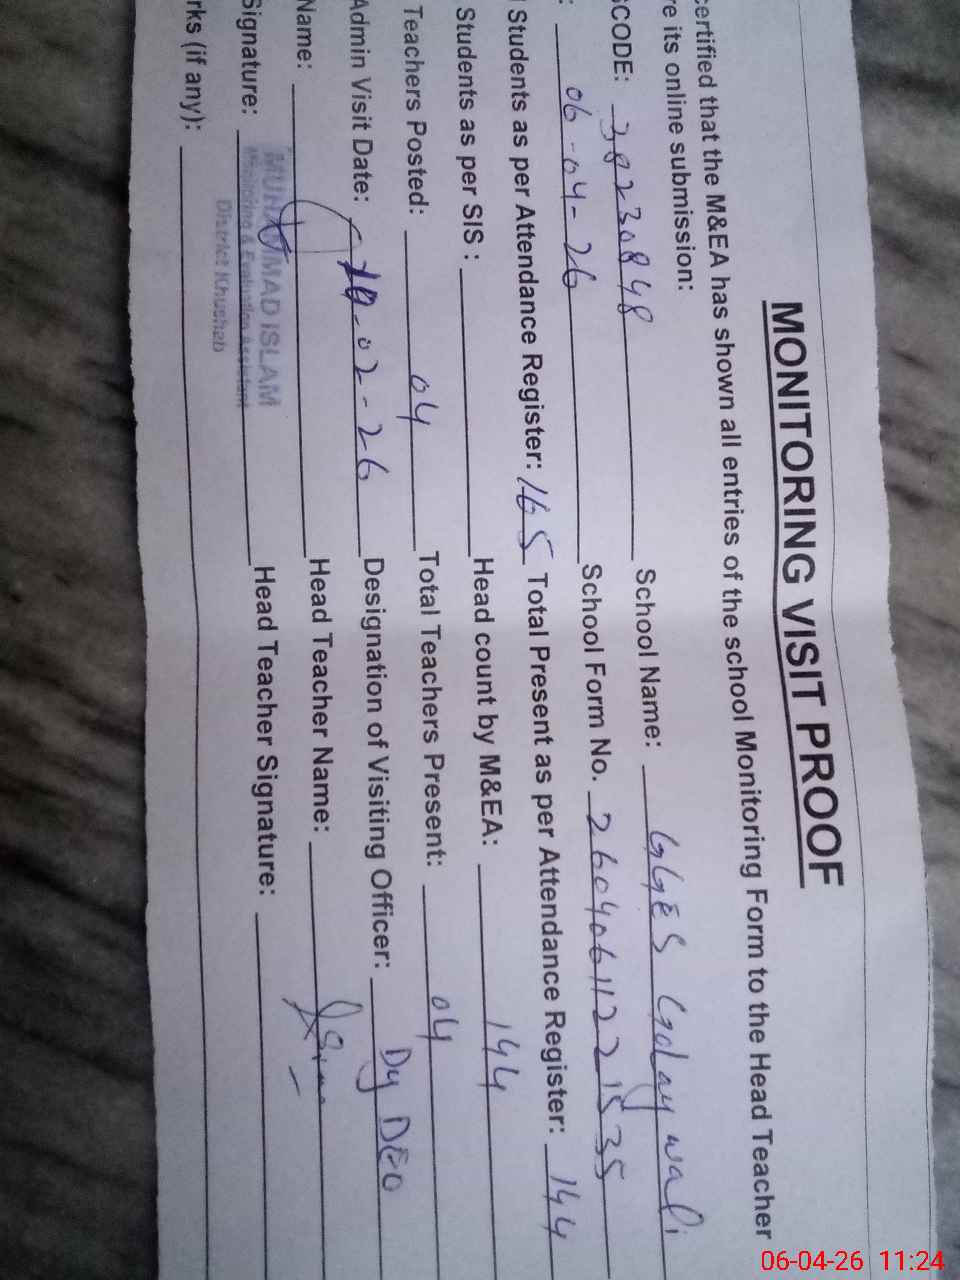 MONITORING VISIT PROOF
certified that the M&EA has shown all entries of the school Monitoring Form to the Head Teacher
re its online submission:
CODE: 38230848 School Name: GGES Goday wali
: 06-04-26 School Form No. 26040611221535
Students as per Attendance Register: 165 Total Present as per Attendance Register: 144
Students as per SIS : Head count by M&EA: 144
Teachers Posted: 04 Total Teachers Present: 04
Admin Visit Date: 10-02-26 Designation of Visiting Officer: Dy DEO
Name: Head Teacher Name:
Signature: Head Teacher Signature:
MUHAMMAD ISLAM
Monitoring & Evaluation Assistant
District Khushab
rks (if any):
06-04-26 11:24